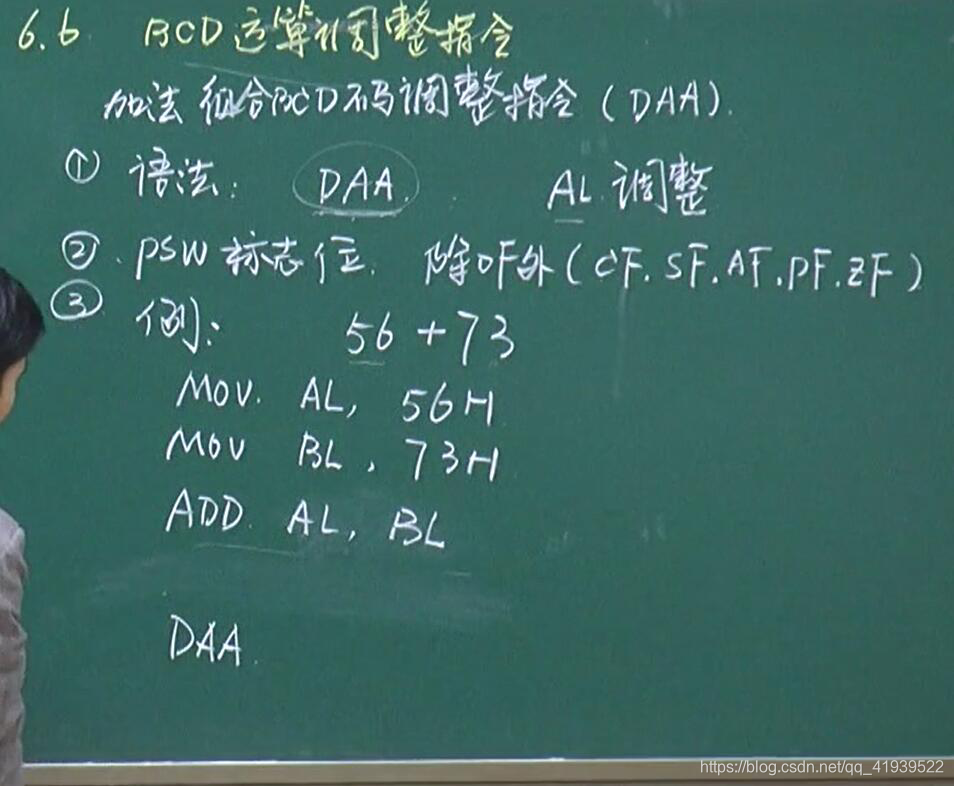 6.6 BCD运算调整指令
加法 组合BCD码调整指令（DAA）.
① 语法： DAA. AL 调整
②. PSW 标志位. 除OF外（CF. SF. AF. PF. ZF）
③ 例： 56+73
MOV. AL, 56H
MOV BL, 73H
ADD. AL, BL
DAA.
https://blog.csdn.net/qq_41939522